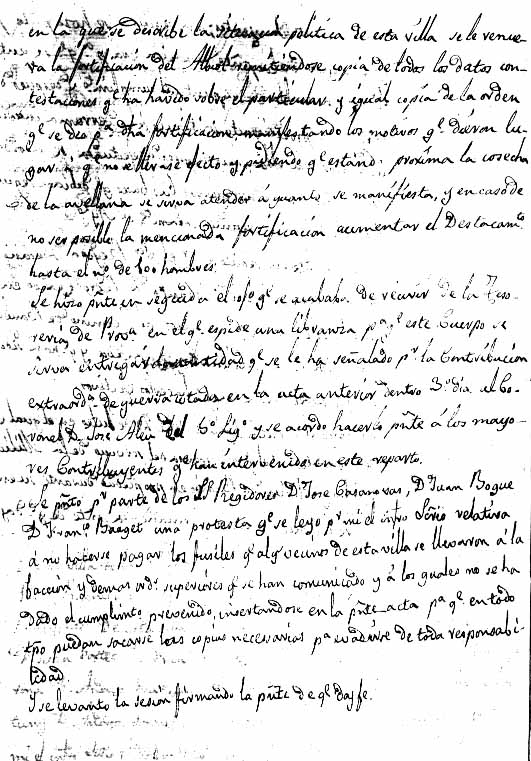 en la que se describe la situacion politica de esta villa se le renue-
va la fortificacion del Albiol remitiendose copia de todos los datos con-
testaciones qe ha havido sobre el particular, y igual copia de la orden
qe se dio pa dha fortificacion manifestando los motivos qe dieron lu-
gar á qe no se llevase efecto y pidiendo qe estando proxima la cosecha
de la avellana se sirva atender á quanto se manifiesta, y en caso de
no ser posible la mencionada fortificacion aumentar el Destacamto
hasta el no de 600 hombres.
Se hizo pnte en seguida el ofo qe se acababa de recivir de la Teso-
reria de Prova en el qe espide una libranza pa qe este Cuerpo se
sirva entregar cantidad qe se le ha señalado pr la Contribucion
extraorda de guerra citada en la acta anterior dentro 3o dia al Co-
ronel D. José del 6o Ligo y se acordo hacerlo pnte á los mayo-
res Contribuyentes qe han intervenido en este reparto.
Se pntó pr parte de los Sres Regidores Dn Jose Casanovas, D. Juan Bogue
D. Frano Baget una protesta qe se leyo pr mi el infro Sñrio relativa
á no hacerse pagar los fusiles qe algs vecinos de esta villa se llevaron á la
faccion y demas ords superiores qe se han comunicado y á los quales no se ha
dado el cumplimto prevenido, insertandose en la pnte acta pa qe en todo
tpo puedan sacarse las copias necesarias pa evadirse de toda responsabi-
lidad.
Y se levanto la sesion firmando la pnte de qe doy fe.